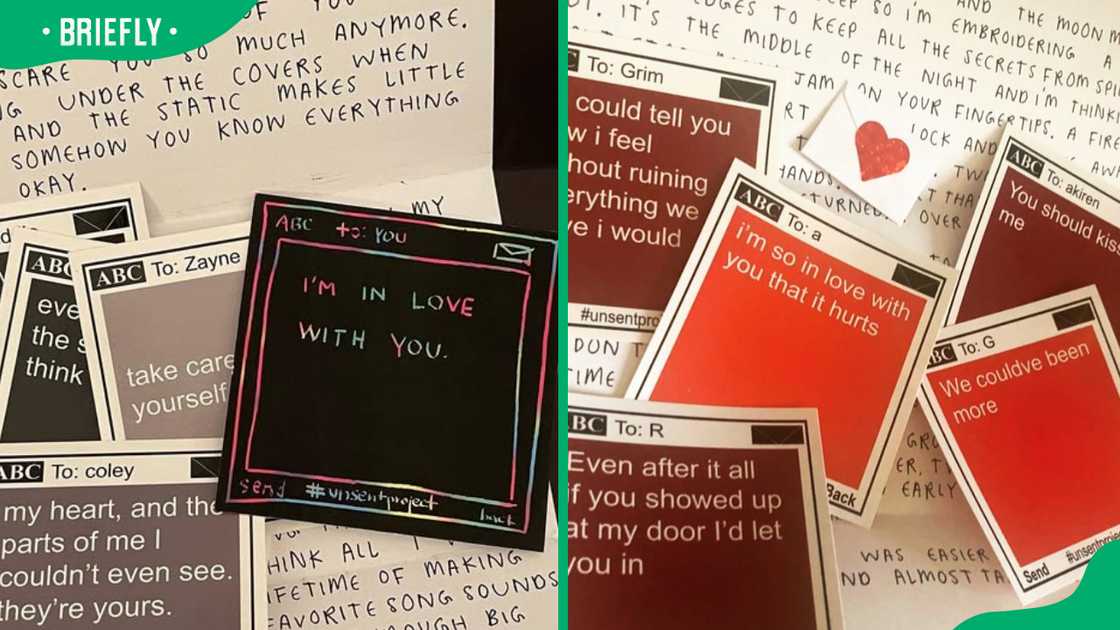 · BRIEFLY ·
OF YOU
SCARE YOU SO MUCH ANYMORE.
UNDER THE COVERS WHEN
AND THE STATIC MAKES LITTLE
SOMEHOW YOU KNOW EVERYTHING
OKAY.
MY
ABC
eve
the s
think
ABC To: Zayne
take care
yourself
ABC to: You
I'M IN LOVE
WITH YOU.
send #unsentproject back
ABC To: coley
my heart, and the
parts of me I
couldn't even see.
they're yours.
THINK ALL I
LIFETIME OF MAKING
FAVORITE SONG SOUNDS
BIG
AND THE MOON
EDGES TO KEEP SO I'M EMBROIDERING A
IT'S THE MIDDLE ALL THE SECRETS FROM
OF THE NIGHT AND I'M
JAM ON YOUR FINGERTIPS. A FIRE
LOCK AND
HANDS.
TURNED OVER
To: Grim
could tell you
w i feel
hout ruining
erything we
ve i would
#unsentpro
ABC To: a
i'm so in love with
you that it hurts
Back
ABC To: akiren
You should kiss
me
BC To: G
We couldve been
more
Send #unsentproje
DON T
TIME
EARLY
BC To: R
Even after it all
if you showed up
at my door I'd let
you in
WAS EASIER
AND ALMOST